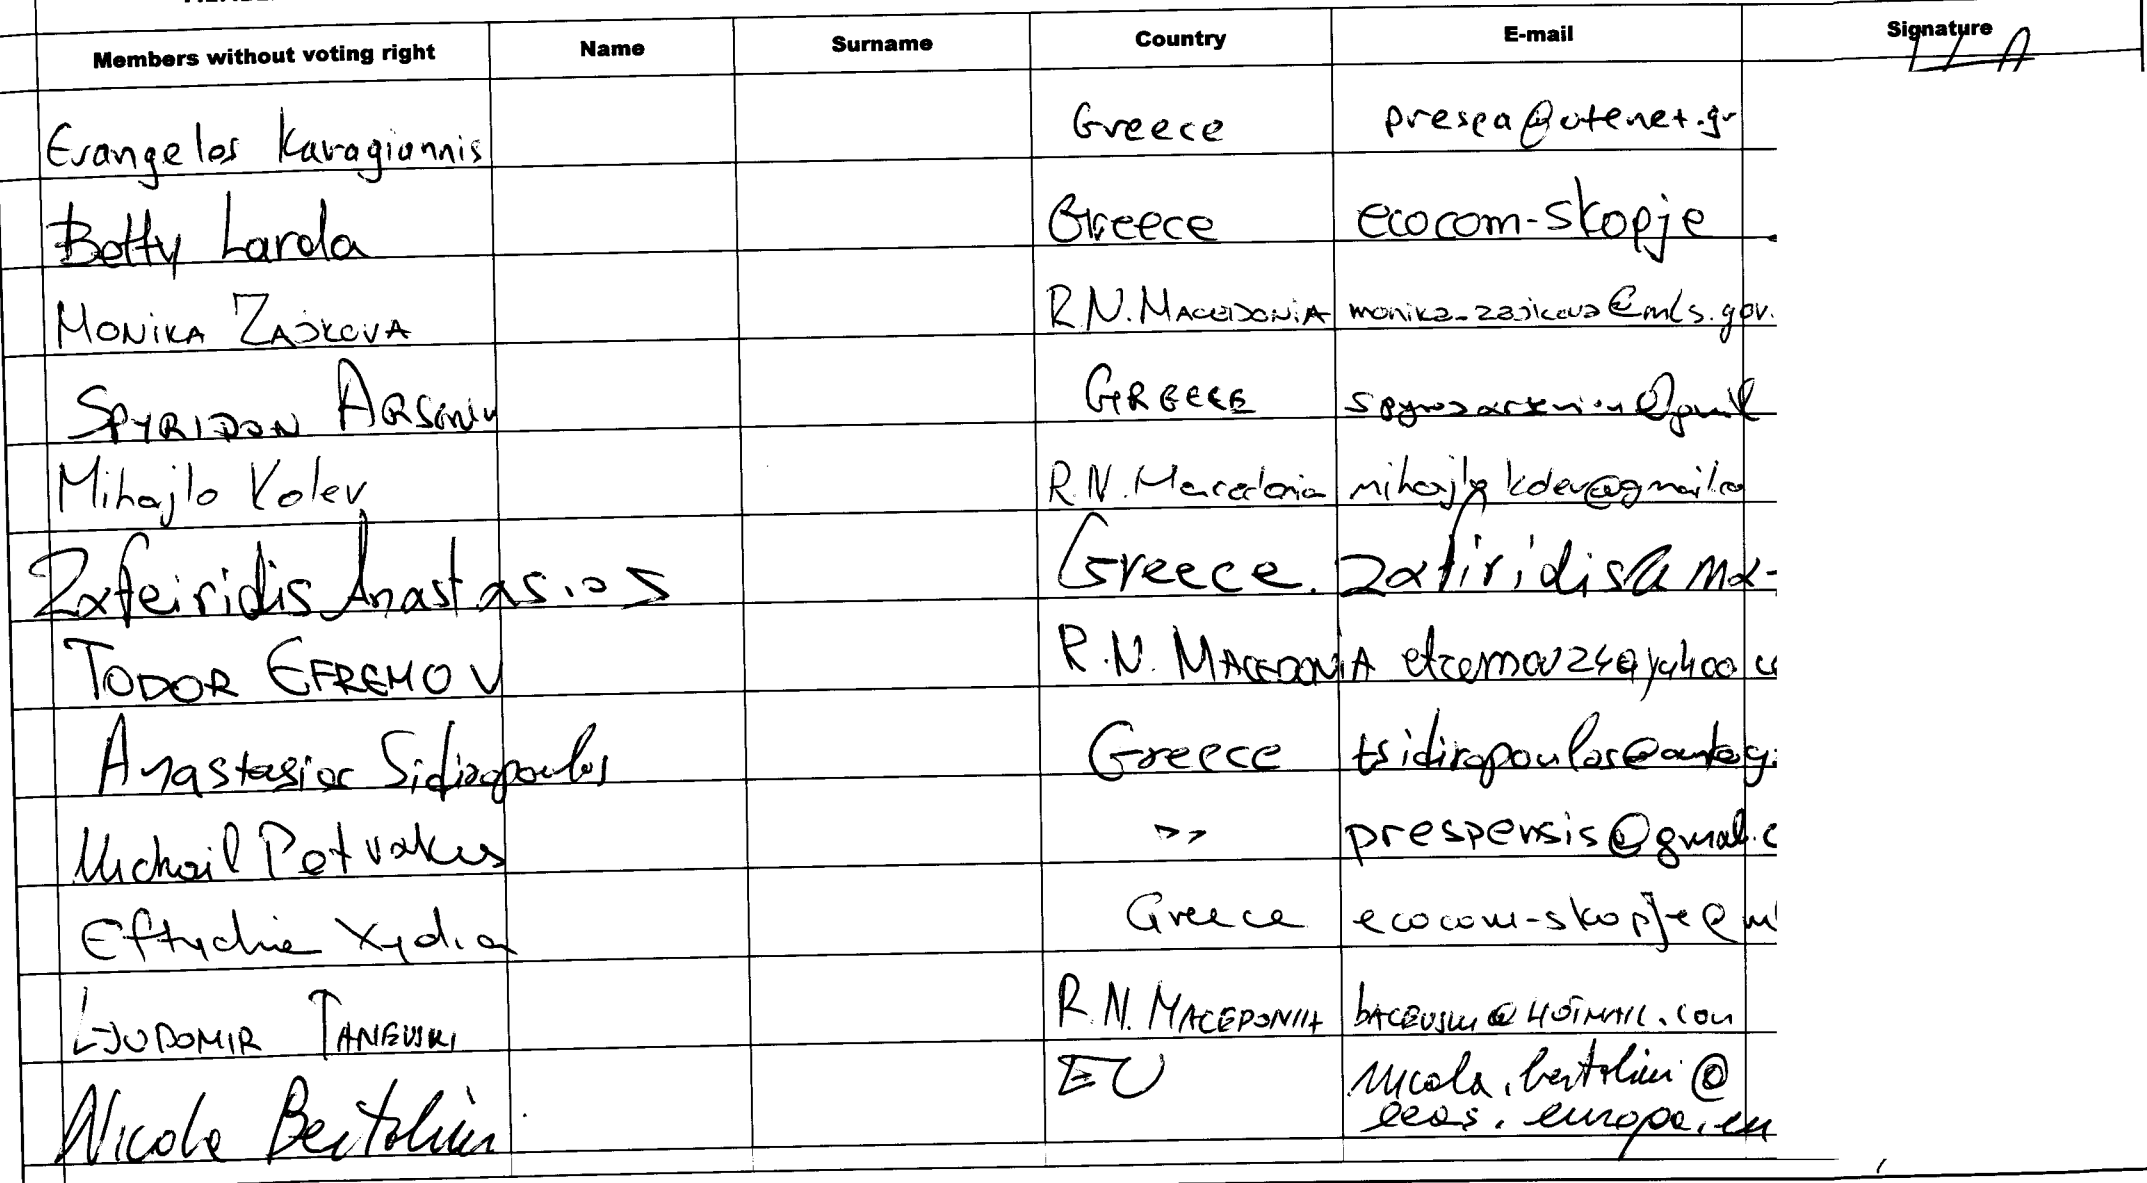 Members without voting right Name Surname Country E-mail Signature
Evangelos Karagiannis Greece prespa@otenet.gr
Betty Larda Greece ecocom-skopje
MONIKA ZAJKOVA R.N. MACEDONIA monika.zajkova@mls.gov.
SPYRIDON GREECE
Mihajlo Kolev R.N. Macedonia
Zafeiridis Anastasios Greece. zafiridis@ma-
TODOR EFREMOV R.N. MACEDONIA
Anastasios Sidiropoulos Greece
Michail Petrakis >> prespensis@gmail.c
Eftychia Xydia Greece ecocom-skopje@m
LJUDOMIR TANEVSKI R.N. MACEDONIA
Nicola Bertolini EU nicola.bertolini@
eeas.europa.eu